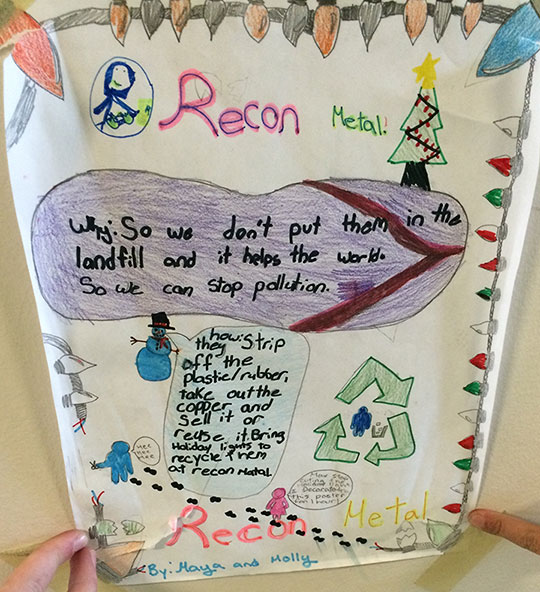 Recon Metal!
Why: So we don't put them in the
landfill and it helps the world.
So we can stop pollution.
how:
they strip
off the
plastic/rubber,
take out the
copper and
sell it or
reuse it. Bring
Holiday lights to
recycle them
at recon Metal.
Hee
Hee
Hee
stop
eating the
Holiday lights
Decorated
this poster
hour!
Recon Metal
By: Maya and Molly